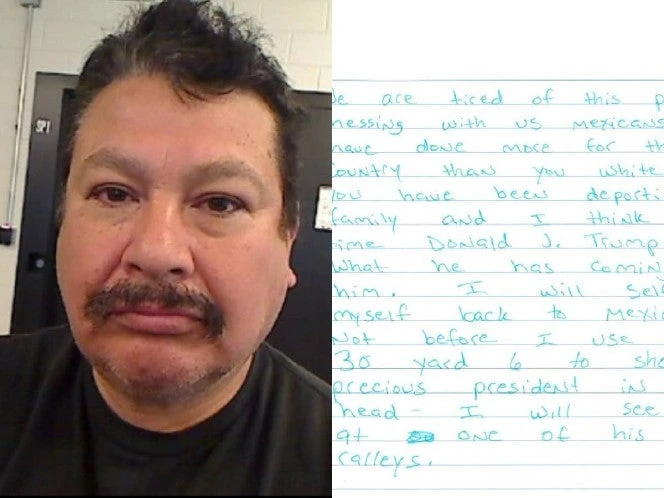 SP1
e are tired of this p
messing with us mexicans
have done more for th
country than you white
you have been deporti
family and I think
time Donald J. Trump
what he has coming
him. I will self
myself back to Mexic
Not before I use
30 yard 6 to sho
precious president in
head - I will see
at one of his
ralleys.